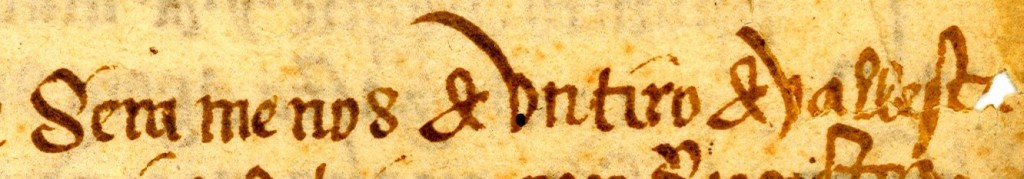 Sera menos de vn tiro de vallesta